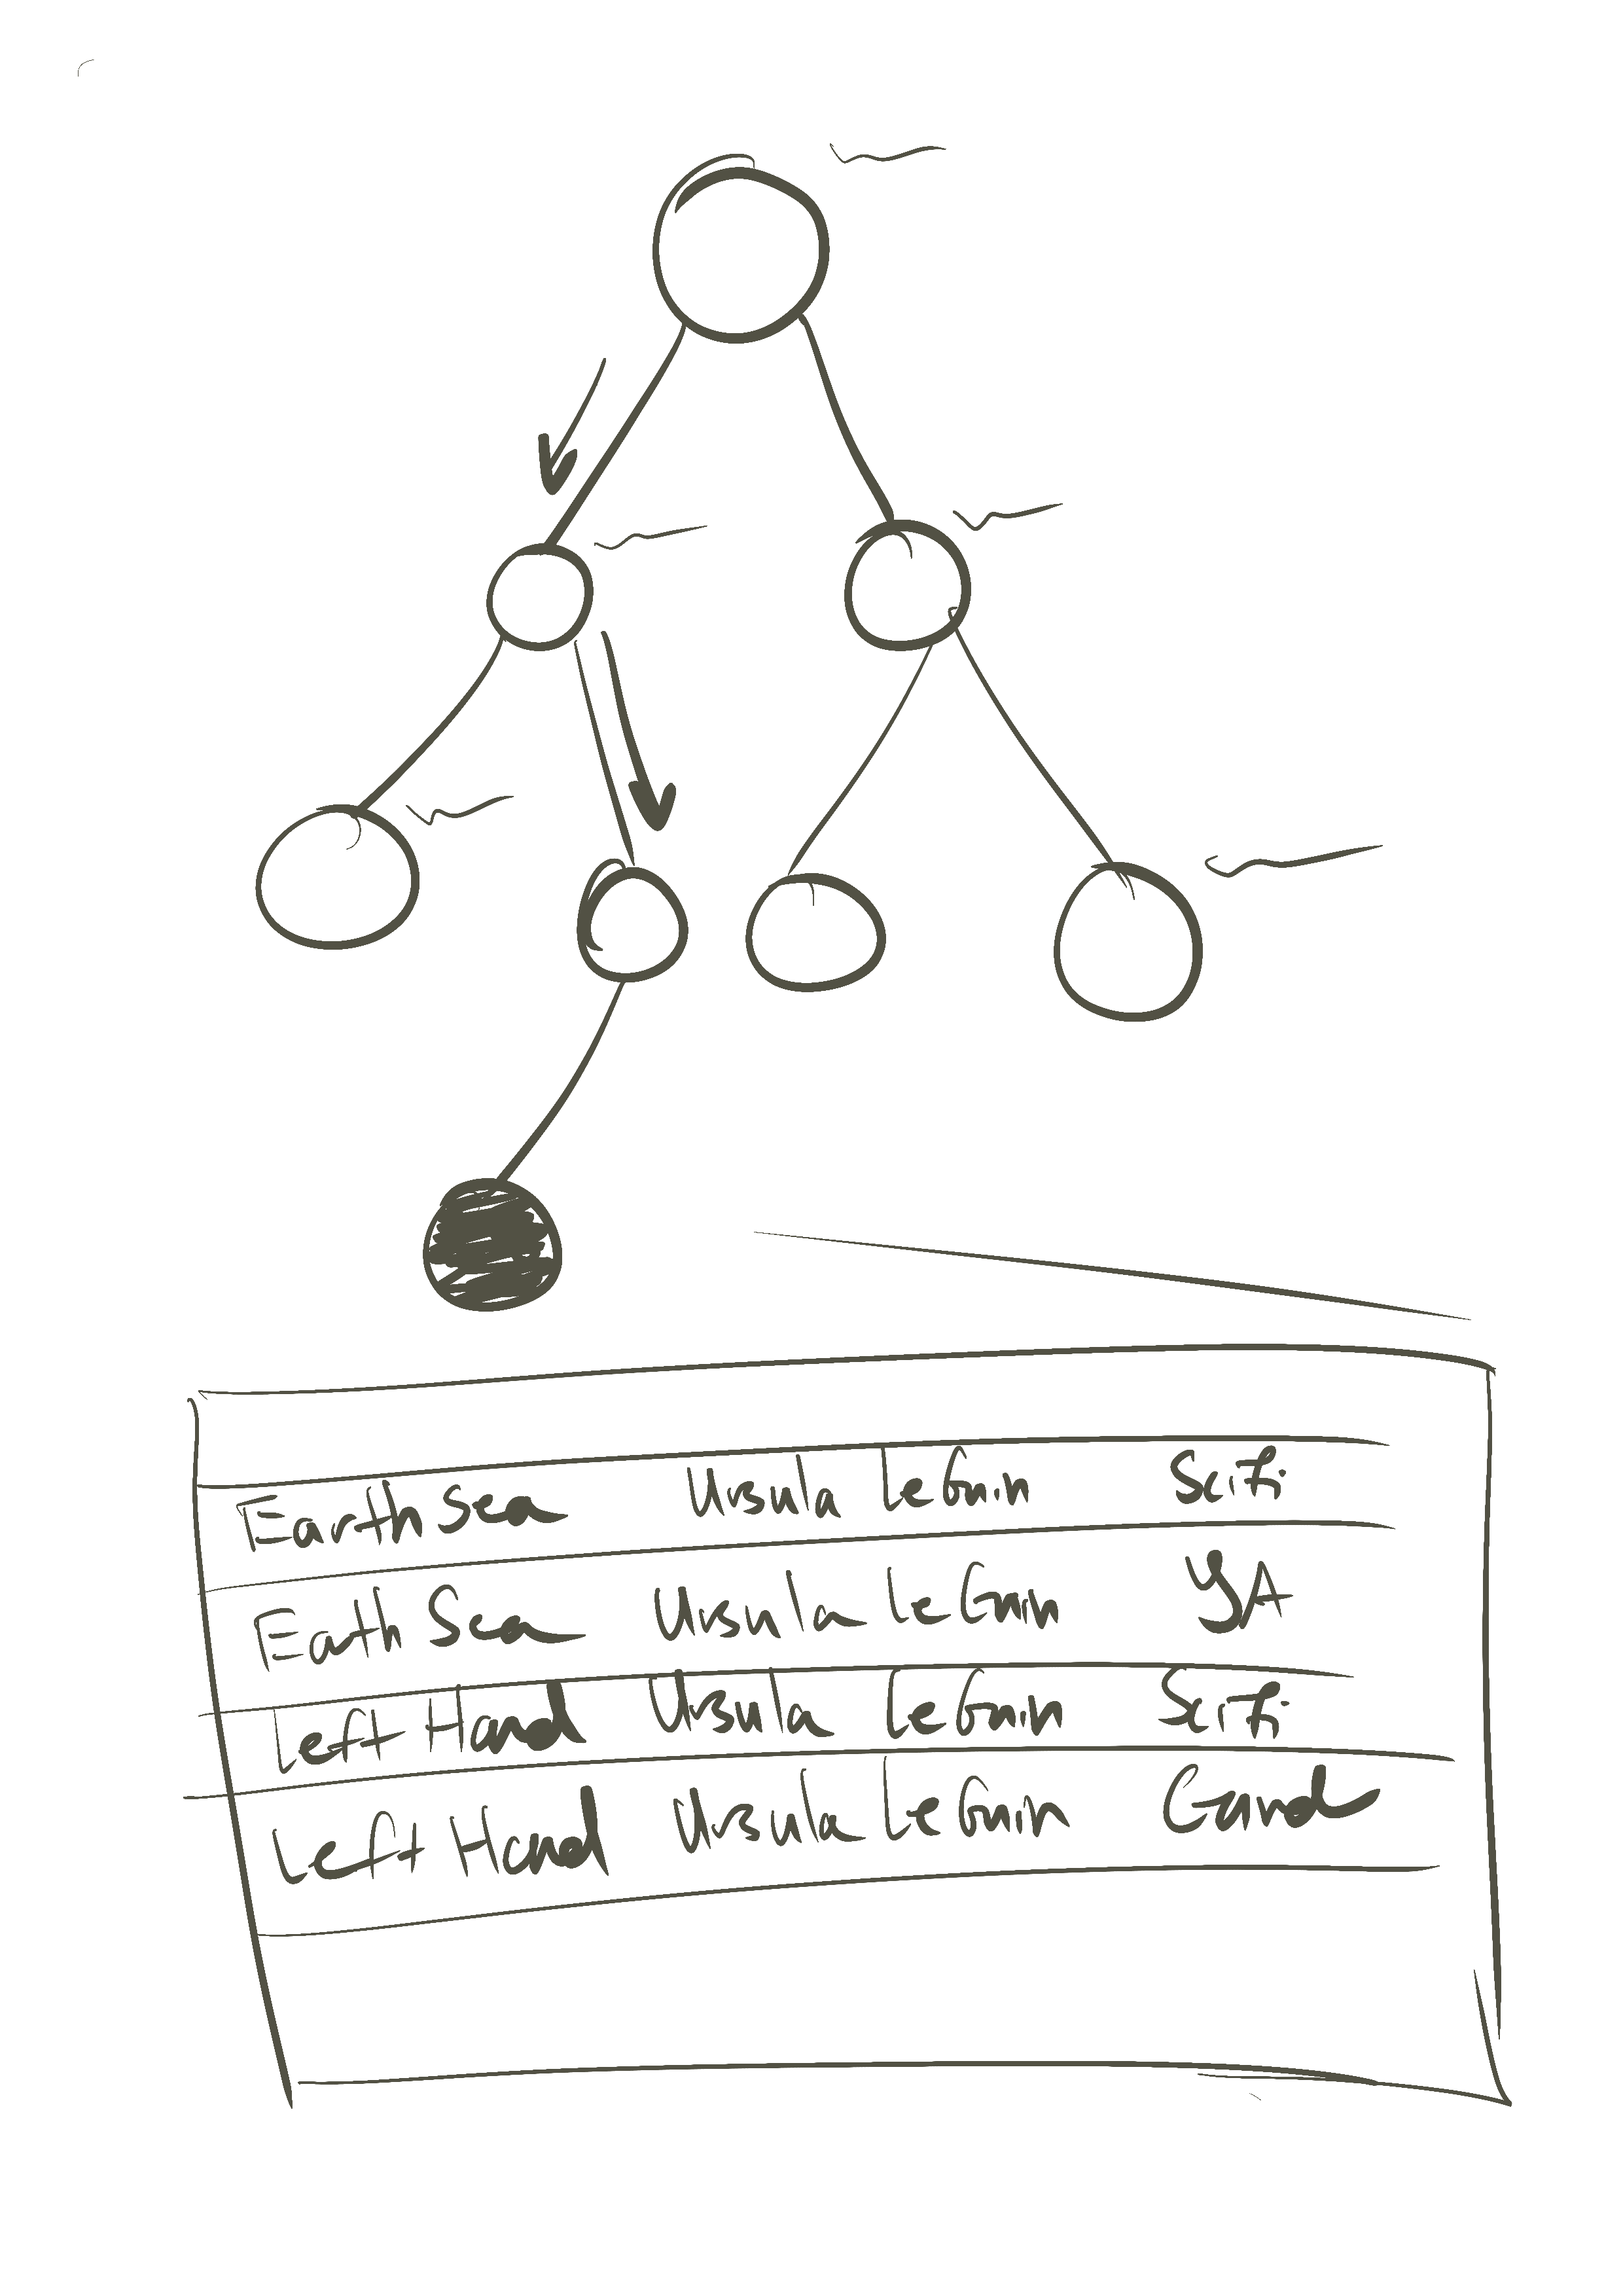 Earth Sea Ursula LeGuin SciFi
Eath Sea Ursula LeGuin YA
Left Hand Ursula LeGuin SciFi
Left Hand Ursula LeGuin